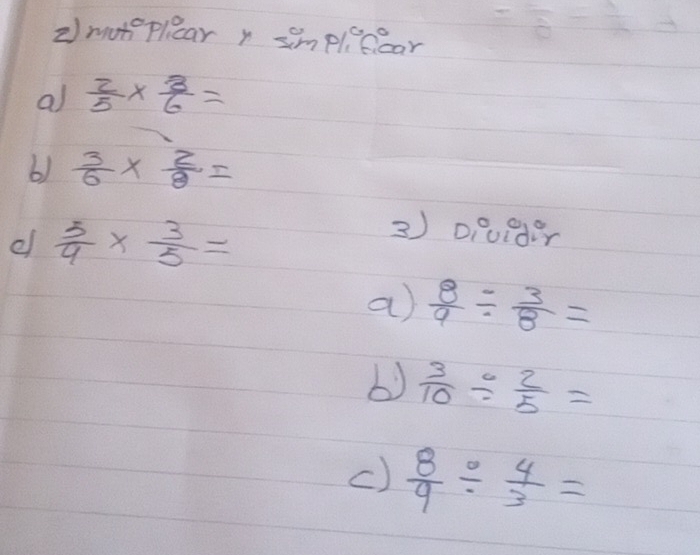 2) mutiplicar y simplificar
a) 2/5 × 3/6 =
b) 3/6 × 2/8 =
c) 5/9 × 3/5 =
3) Dividir
a) 8/9 ÷ 3/8 =
b) 3/10 ÷ 2/5 =
c) 8/9 ÷ 4/3 =